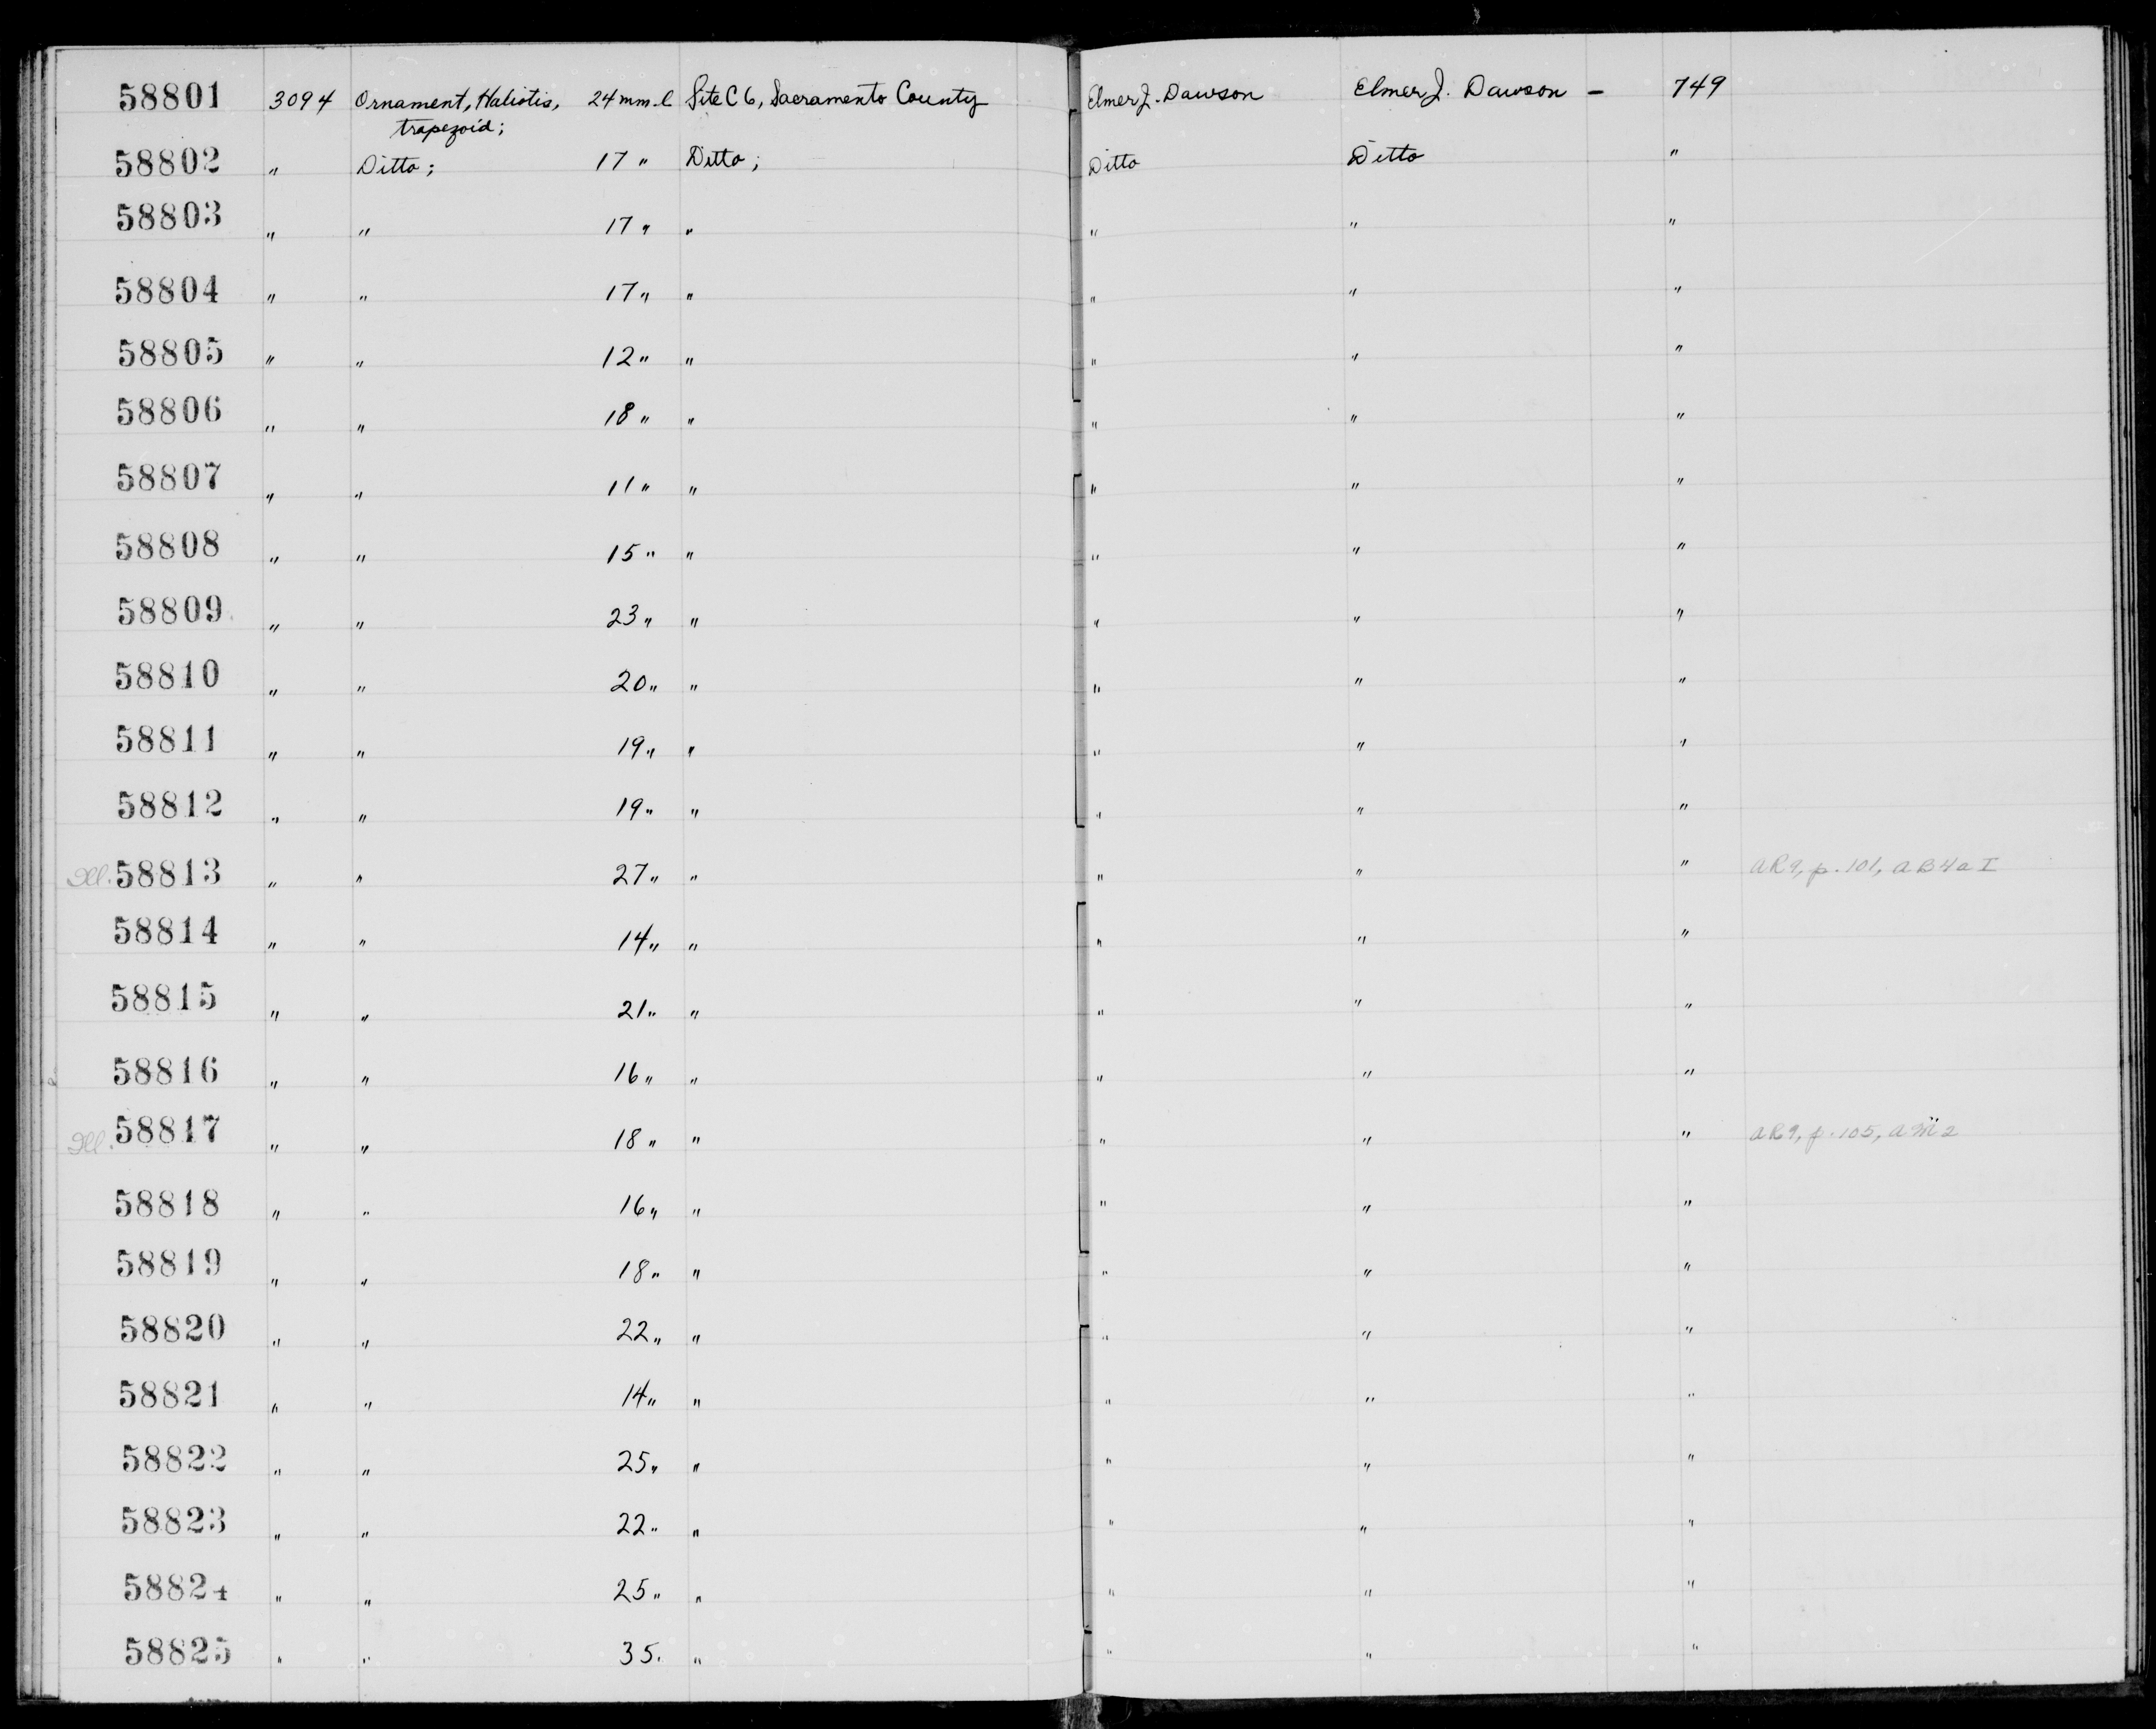 58801 3094 Ornament, Haliotis, 24 mm. l Site C 6, Sacramento County Elmer J. Dawson Elmer J. Dawson - 749
trapezoid;
58802 " Ditto; 17 " Ditto; Ditto Ditto "
58803 " " 17 " " " " "
58804 " " 17 " " " " "
58805 " " 12 " " " " "
58806 " " 18 " " " " "
58807 " " 11 " " " " "
58808 " " 15 " " " " "
58809 " " 23 " " " " "
58810 " " 20 " " " " "
58811 " " 19 " " " " "
58812 " " 19 " " " " "
Ill. 58813 " " 27 " " " " " AR9, p. 101, AB4a I
58814 " " 14 " " " " "
58815 " " 21 " " " " "
58816 " " 16 " " " " "
Ill. 58817 " " 18 " " " " " AR9, p. 105,
58818 " " 16 " " " " "
58819 " " 18 " " " " "
58820 " " 22 " " " " "
58821 " " 14 " " " " "
58822 " " 25 " " " " "
58823 " " 22 " " " " "
58824 " " 25 " " " " "
58825 " " 35 " " " " "